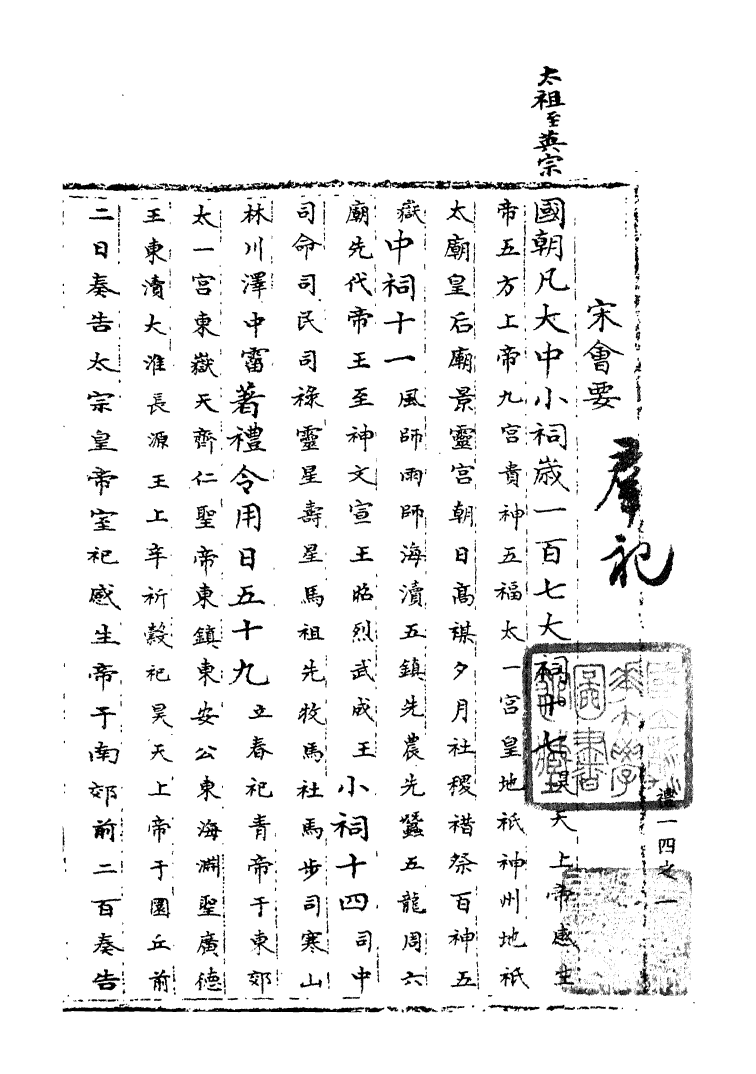 太祖至英宗
宋會要
羣祀
國朝凡大中小祠歲一百七大祠卅七昊天上帝感生
帝五方上帝九宮貴神五福太一宮皇地祇神州地祇
太廟皇后廟景靈宮朝日髙禖夕月社稷禇祭百神五
嶽中祠十一風師雨師海瀆五鎮先農先蠶五龍周六
廟先代帝王至神文宣王昭烈武成王小祠十四司中
司命司民司祿靈星壽星馬祖先牧馬社馬步司寒山
林川澤中霤著禮令用日五十九立春祀青帝于東郊
太一宮東嶽天齊仁聖帝東鎮東安公東海淵聖廣德
王東瀆大淮長源王上辛祈穀祀昊天上帝于圜丘前
二日奏告太宗皇帝室祀感生帝于南郊前二百奏告
禮一四之一